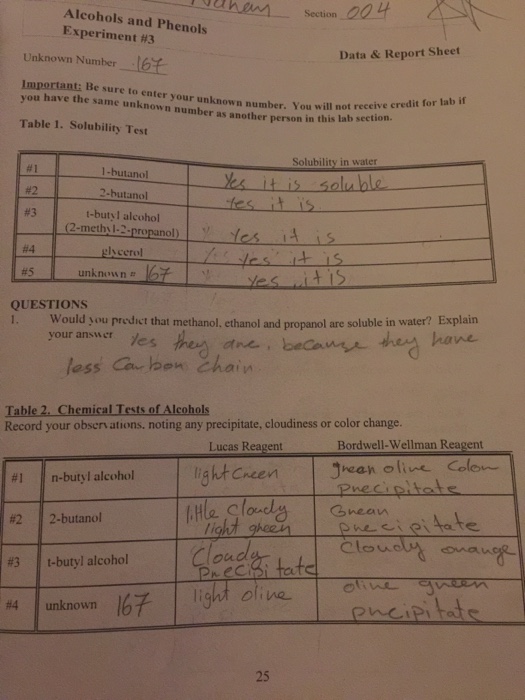 Alcohols and Phenols
Section 004
Experiment #3
Data & Report Sheet
Unknown Number 167
Important: Be sure to enter your unknown number. You will not receive credit for lab if
you have the same unknown number as another person in this lab section.
Table 1. Solubility Test
Solubility in water
#1 1-butanol Yes it is soluble
#2 2-butanol Yes it is
#3 t-butyl alcohol
(2-methyl-2-propanol) Yes it is
#4 glycerol Yes it is
#5 unknown # 167 Yes it is
QUESTIONS
1. Would you predict that methanol, ethanol and propanol are soluble in water? Explain
your answer Yes they are, because they have
less Carbon chain
Table 2. Chemical Tests of Alcohols
Record your observations, noting any precipitate, cloudiness or color change.
Lucas Reagent Bordwell-Wellman Reagent
#1 n-butyl alcohol light Green Green olive Color
Precipitate
#2 2-butanol little Cloudy Green
light green precipitate
#3 t-butyl alcohol Cloudy Cloudy orange
Precipitate
#4 unknown 167 light olive olive green
precipitate
25